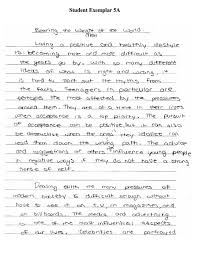 Student Exemplar 5A
Bearing the Weight of the World
Then
Living a positive and healthy lifestyle
is becoming more and more difficult as
the years go by. With so many different
ideas of what is right and wrong it
is hard to sort out the myths from
the facts. Teenagers in particular are
perhaps the most affected by the pressures
around them. They are at a time in their lives
when acceptance is a top priority. The pursuit
of acceptance can be positive, but it can also
be destructive when the ones they idolize can
lead them down the wrong path. The
and suggestions of others influence young people
in negative ways if they do not have a strong
sense of self.
Dealing with the many pressures of
modern society is difficult enough without
have to see it on T.V., in magazines, and
on billboards. The media and advertising
is one of the most influential aspects
of our lives. Celebrities are portrayed